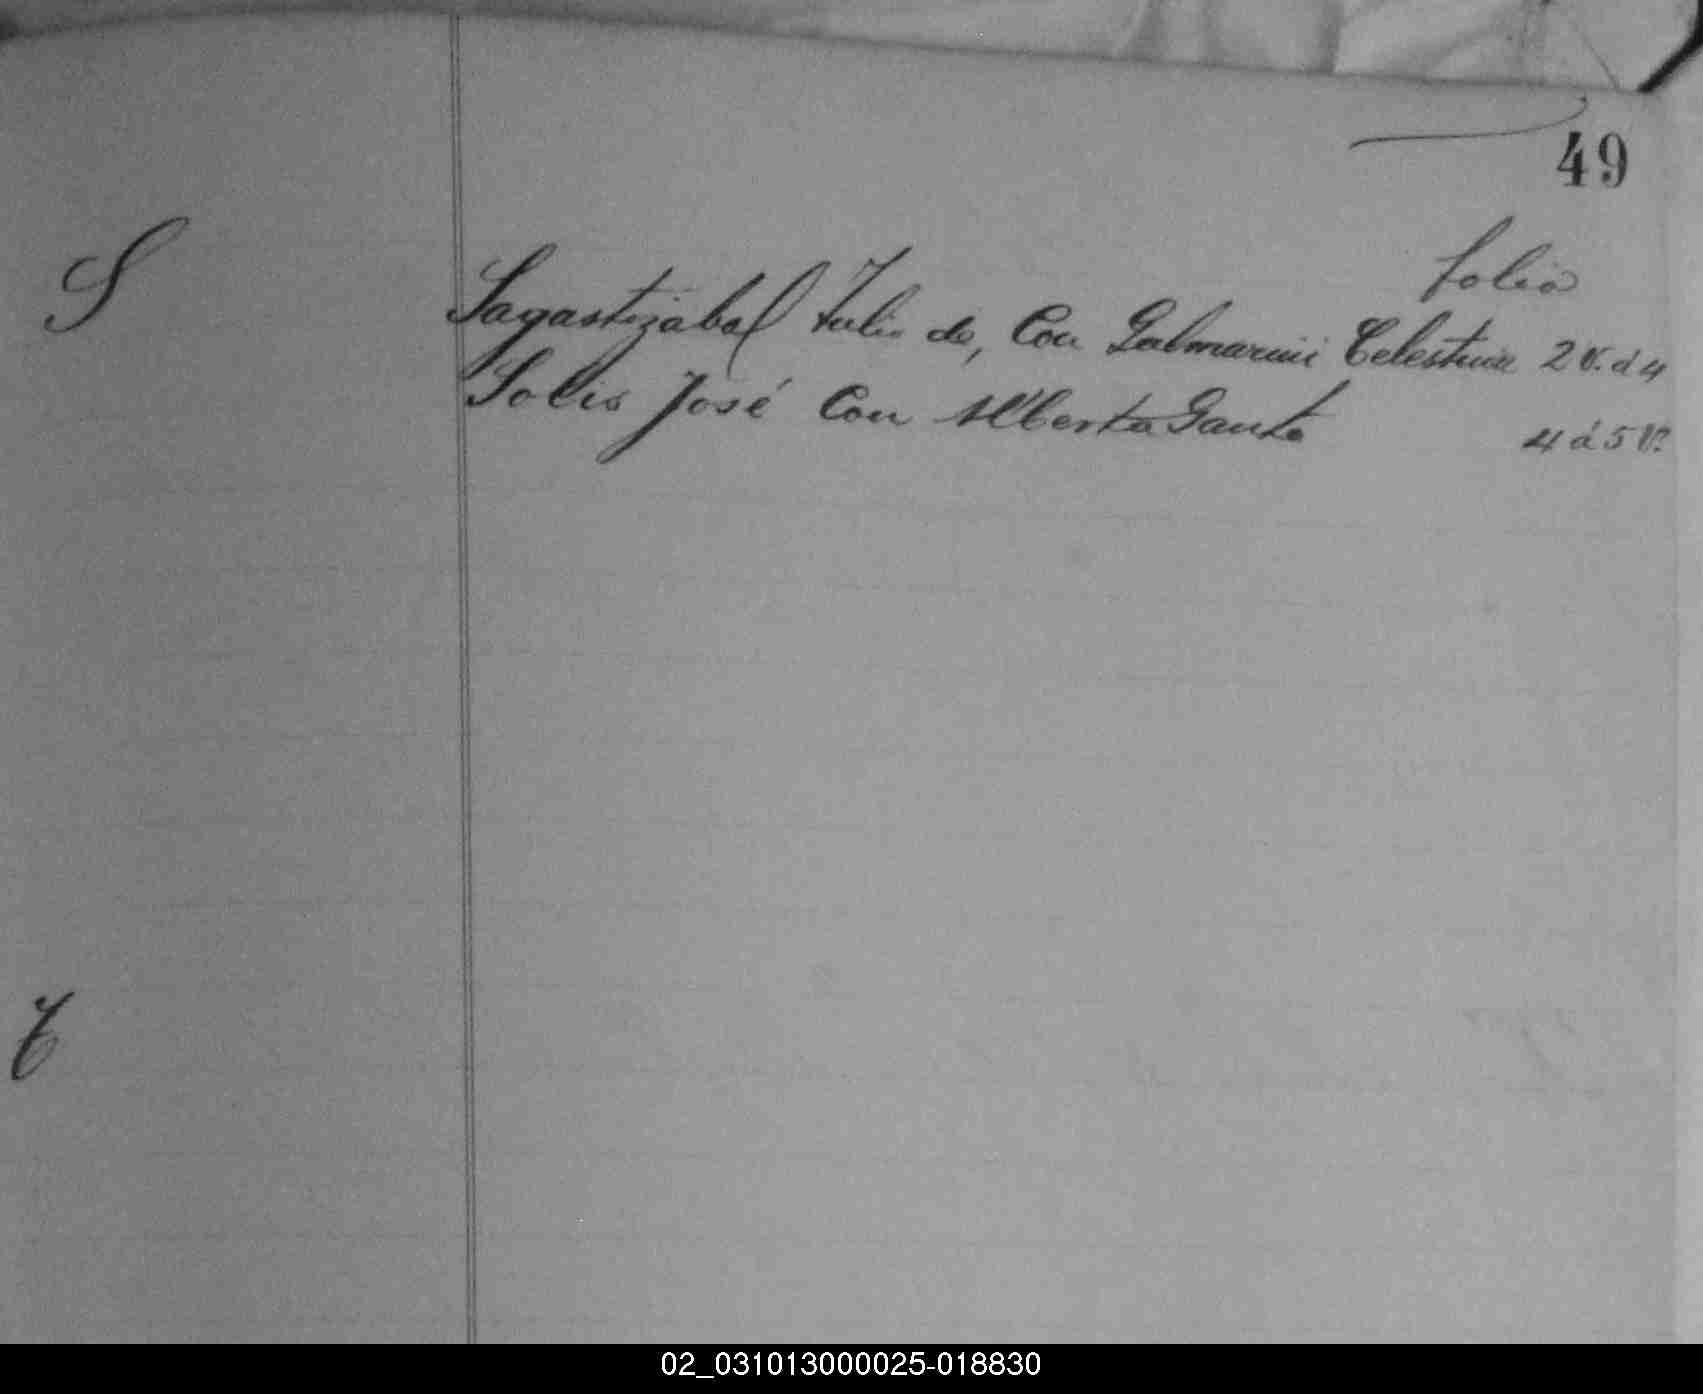 49
folio
S Sagastizabal Julio de, Con Galmarini Celestina 2 v. á 4
Solis José Con Alberta Gauto 4 á 5 vº
T
02_031013000025-018830